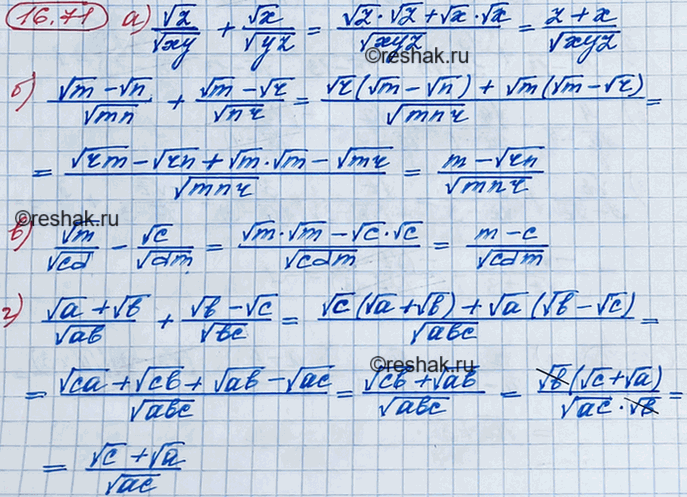 16.71 а) √z/√xy + √x/√yz = (√z·√z + √x·√x)/√xyz = (z + x)/√xyz
©reshak.ru
б) (√m − √n)/√mn + (√m − √r)/√nr = (√r(√m − √n) + √m(√m − √r))/√mnr =
= (√rm − √rn + √m·√m − √mr)/√mnr = (m − √rn)/√mnr
©reshak.ru
в) √m/√cd − √c/√dm = (√m·√m − √c·√c)/√cdm = (m − c)/√cdm
г) (√a + √b)/√ab + (√b − √c)/√bc = (√c(√a + √b) + √a(√b − √c))/√abc =
©reshak.ru
= (√ca + √cb + √ab − √ac)/√abc = (√cb + √ab)/√abc = √b(√c + √a)/(√ac·√b) =
= (√c + √a)/√ac